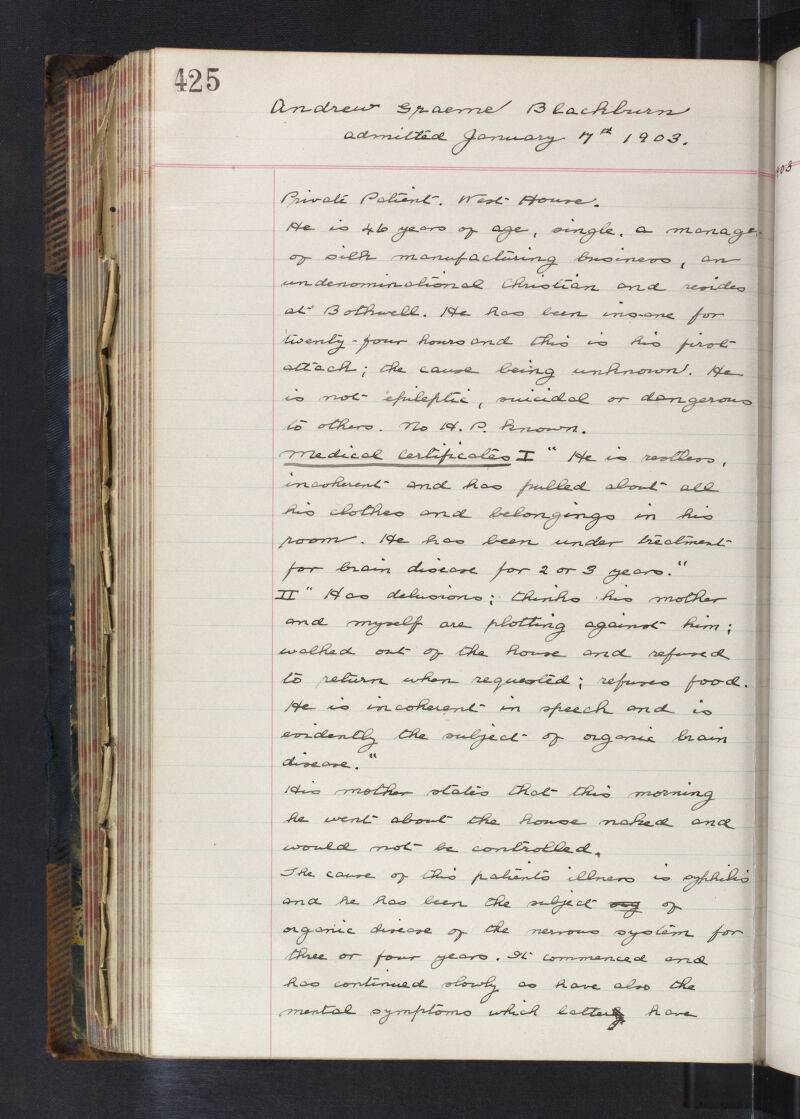 425
Andrew Graeme Blackburn
admitted January 7th 1903.
Private Patient. West House.
He is 46 years of age, single, a manager
of silk manufacturing business, an
undenominational Christian and resides
at Bothwell. He has been insane for
twenty-four hours and this is his first
attack; the cause being unknown. He
is not epileptic, suicidal or dangerous
to others. No H. P. known.
Medical Certificates I " He is restless,
incoherent and has pulled about all
his clothes and belongings in his
room. He has been under treatment
for brain disease for 2 or 3 years."
II " Has delusions; thinks his mother
and myself are plotting against him;
walked out of the house and refused
to return when requested; refuses food.
He is incoherent in speech and is
evidently the subject of organic brain
disease."
His mother states that this morning
he went about the house naked and
would not be controlled.
The cause of this patients illness is syphilis
and he has been the subject org of
organic disease of the nervous system for
three or four years. It commenced and
has continued slowly as have also the
mental symptoms which latterly have
903